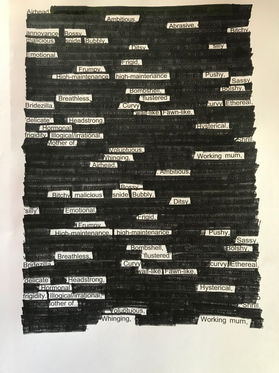 Airhead,
Ambitious,
Abrasive,
Bossy, Bitchy,
malicious snide Bubbly,
Ditsy
Emotional,
Frigid,
Frumpy,
High-maintenance high-maintenance Pushy,
Sassy,
Bombshell, Bolshy,
Breathless, flustered
Bridezilla, Curvy curvy, Ethereal
waif-like Fawn-like,
delicate, Headstrong,
Hormonal Hysterical,
frigidity, Illogical/irrational,
Mother of Shrill
Voluptuous
Whinging, Working mum,
Airhead,
Ambitious
Bossy
Bitchy malicious snide Bubbly,
Ditsy
silly Emotional,
Frigid,
Frumpy
High-maintenance, high-maintenance Pushy,
Sassy
Bombshell, Bolshy,
Breathless, flustered
Bridezilla, Curvy curvy, Ethereal
waif-like Fawn-like,
delicate, Headstrong,
Hormonal Hysterical,
frigidity, Illogical/irrational,
Mother of Shrill
Voluptuous,
Whinging, Working mum,